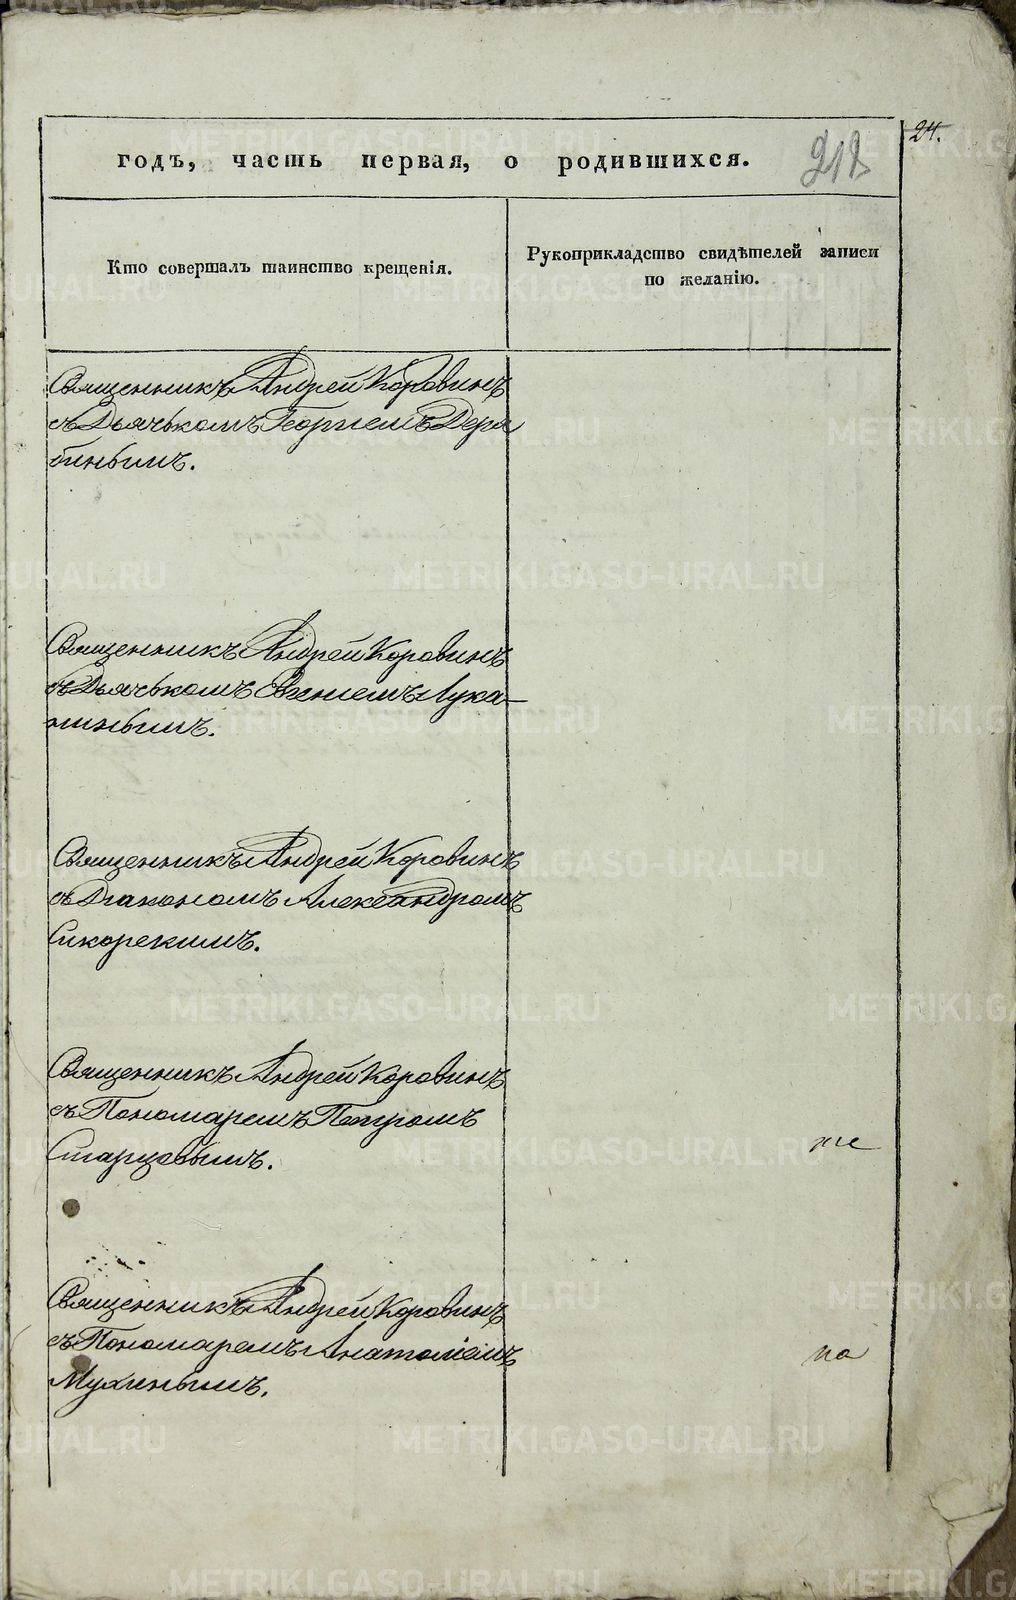 24.
годъ, часть первая, о родившихся. 212
Кто совершалъ таинство крещенія.
Рукоприкладство свидѣтелей записи
по желанію.
Священникъ Андрей Коровинъ
съ Дьячькомъ Георгіемъ Деря
бинымъ.
Священникъ Андрей Коровинъ
съ Дьячькомъ Евгеніемъ Лука-
нинымъ.
Священникъ Андрей Коровинъ
съ Діакономъ Александромъ
Сикорскимъ.
Священникъ Андрей Коровинъ
съ Пономаремъ Петромъ
Старцовымъ.
же
Священникъ Андрей Коровинъ
съ Пономаремъ Анатоліемъ
Мухинымъ.
на
METRIKI.GASO-URAL.RU